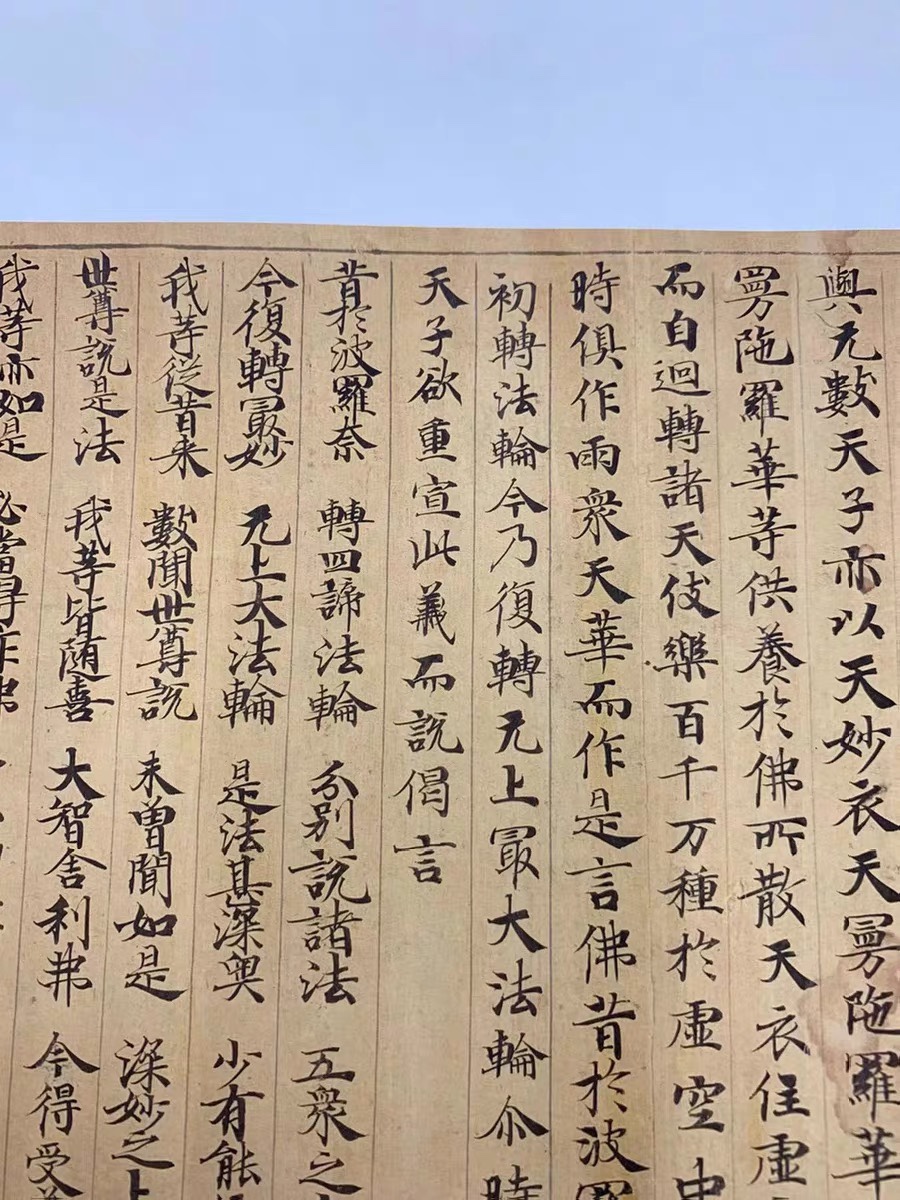 與无數天子亦以天妙衣天曼陁羅華
曼陁羅華等供養於佛所散天衣住虛
而自迴轉諸天伎樂百千万種於虛空中
時俱作雨衆天華而作是言佛昔於波羅
初轉法輪今乃復轉无上冣大法輪尒時
天子欲重宣此義而說偈言
昔於波羅奈 轉四諦法輪 分別說諸法 五衆之
今復轉冣妙 无上大法輪 是法甚深奥 少有能
我等從昔来 數聞世尊說 未曾聞如是 深妙之上
世尊說是法 我等皆随喜 大智舍利弗 今得受
我等亦如是 必當得作佛